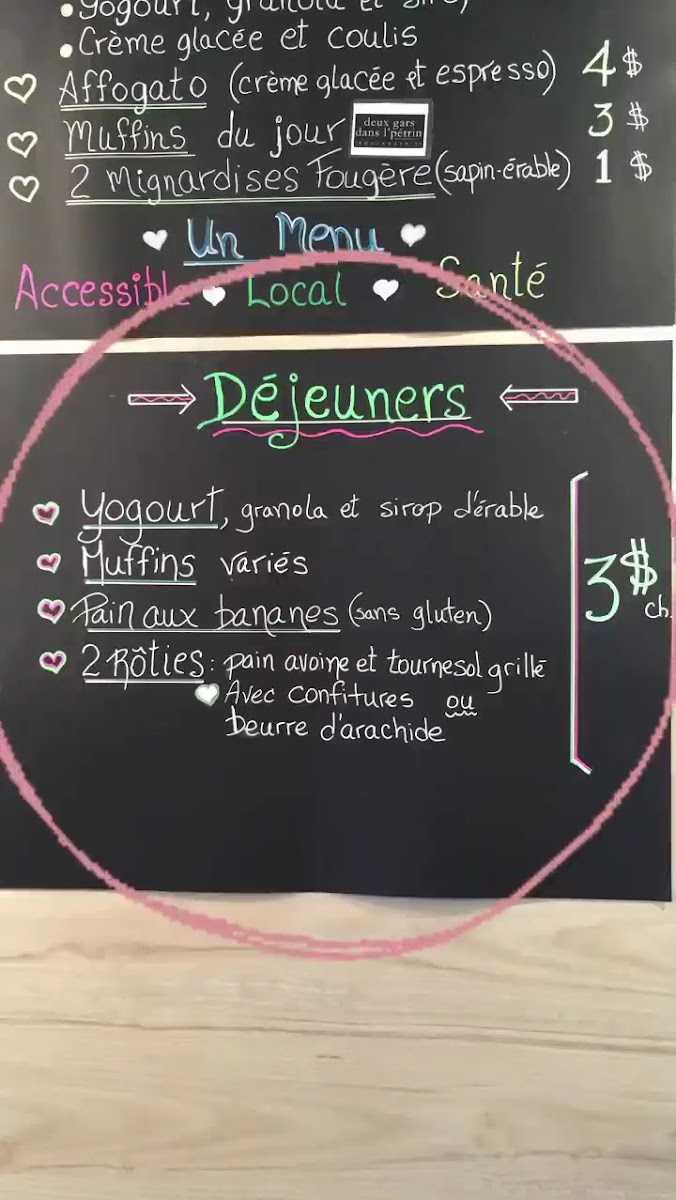 • Yogourt, granola et
• Crème glacée et coulis
Affogato (crème glacée et espresso) 4$
Muffins du jour deux gars dans l'pétrin 3$
2 Mignardises Fougère (sapin-érable) 1$
Un Menu
Accessible Local Santé
Déjeuners
Yogourt, granola et sirop d'érable
Muffins variés
3$ ch.
Pain aux bananes (sans gluten)
2 Rôties: pain avoine et tournesol grillé
Avec confitures ou
beurre d'arachide